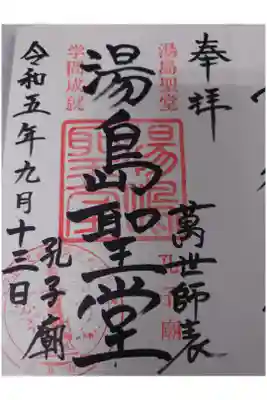 奉拝
湯島聖堂
萬世師表
湯島聖堂
孔子廟
学問成就
孔子廟
令和五年九月十三日